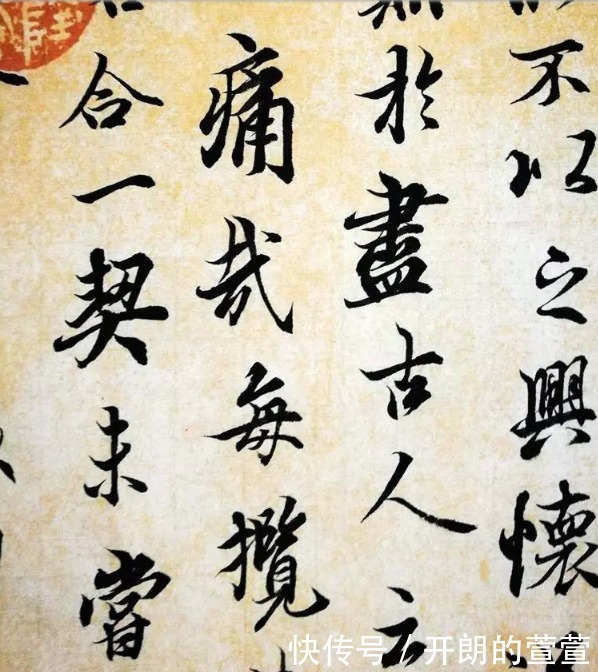 不以之興懷
於盡古人云
痛哉每攬
合一契未嘗
快传号 / 开朗的萱萱